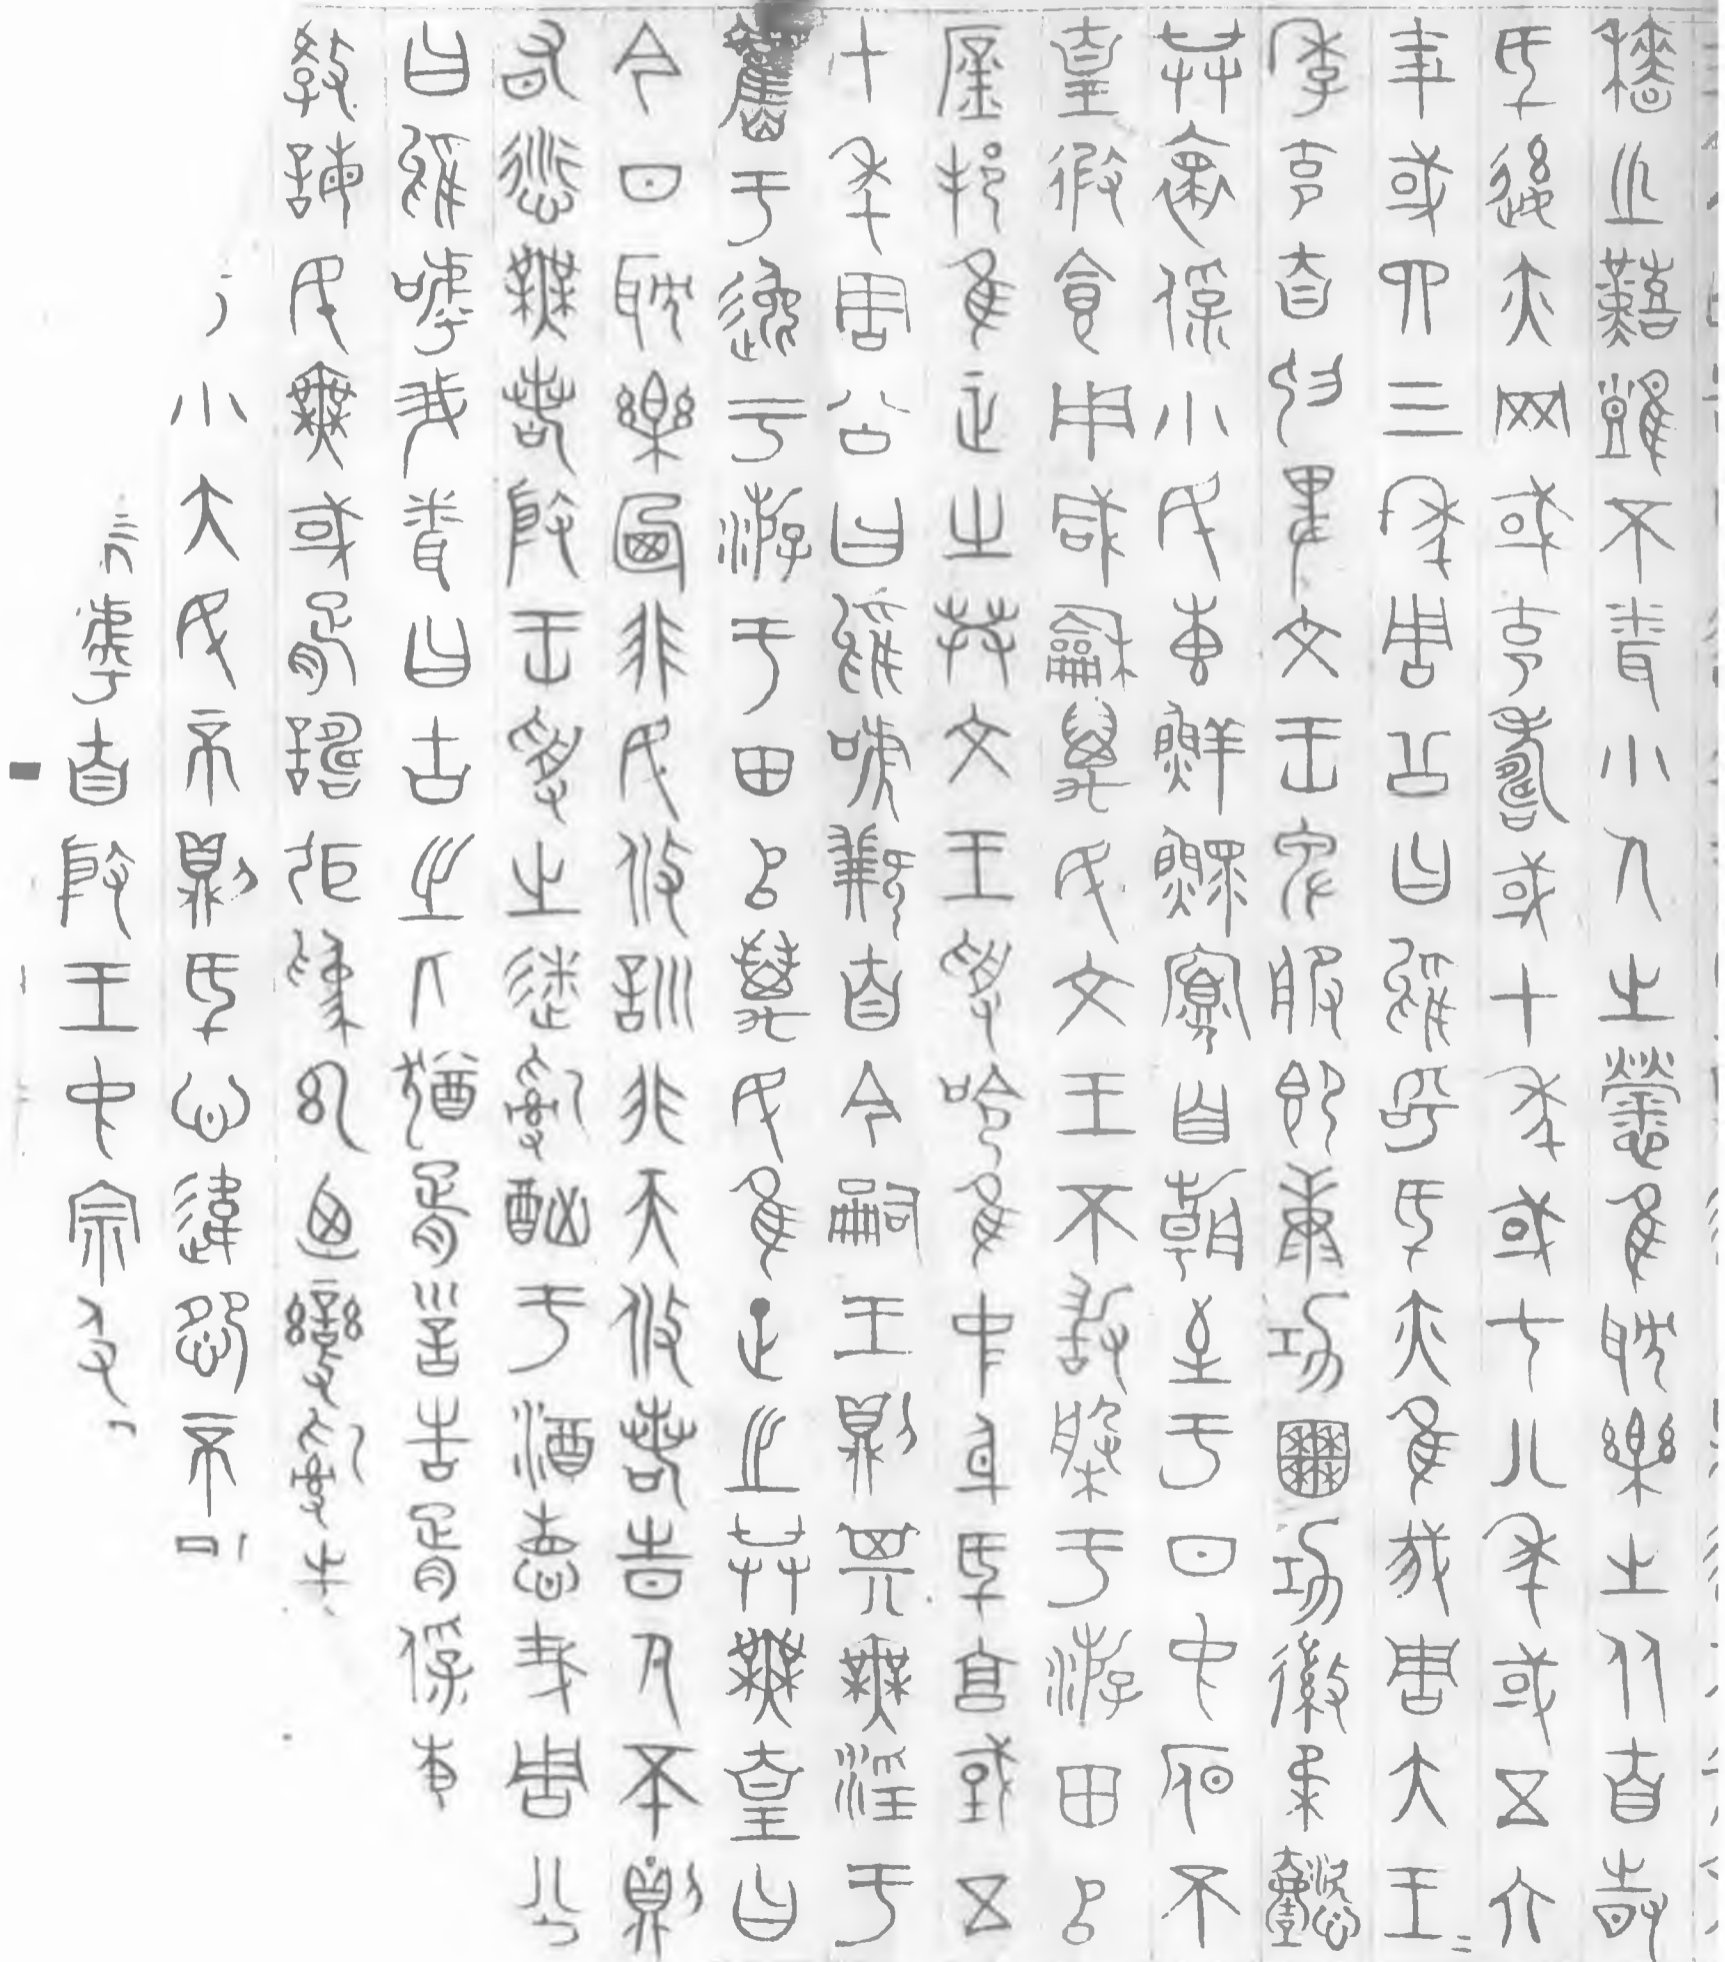 穡之艱難不聞小人之勞惟耽樂之从自時
厥後亦罔或克壽或十年或七八年或五六
年或四三年周公曰烏乎厥亦惟我周大王=
季克自抑畏文王卑服即康功田功徽柔懿
共懷保小民惠鮮鰥寡自朝至于日中昃不
皇暇食用咸和萬民文王不敢槃于游田以
庶邦惟正之共文王受命惟中身厥享國五
十年周公曰烏嘑繼自今嗣王則其無淫于
觀于逸于游于田以萬民惟正之共無皇曰
今日耽樂迺非民攸訓非天攸若時人丕則
有愆無若殷王受之迷亂酗于酒德哉周公
曰烏嘑我聞曰古之人猶胥訓告胥保惠
教誨民無或胥譸張為幻迺變亂先
小大民否則厥心違怨否
嘑自殷王中宗及